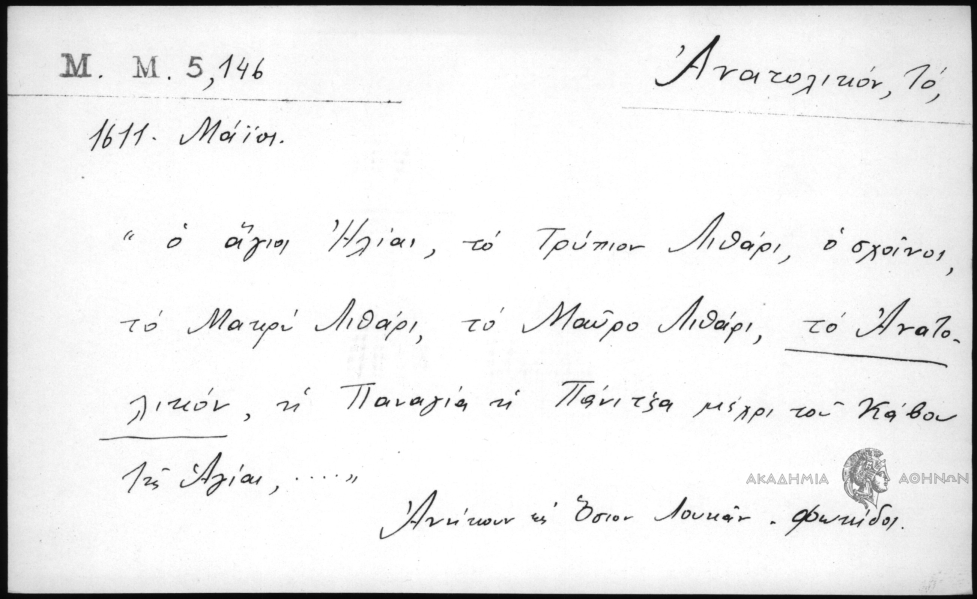 M. M. 5,146
Ἀνατολικόν, τό,
1611. Μάϊος.
“ ὁ ἅγιος Ἠλίας, τό Τρύπιον Λιθάρι, ὁ σχοῖνος,
τό Μακρύ Λιθάρι, τό Μαῦρο Λιθάρι, τό Ἀνατο-
λικόν, ἡ Παναγία ἡ Πάνιτζα μέχρι τοῦ Κάβου
τῆς Ἁγίας, ..... „
ΑΚΑΔΗΜΙΑ ΑΘΗΝΩΝ
Ἀνήκουν εἰς Ὅσιον Λουκᾶν. Φωκίδος.